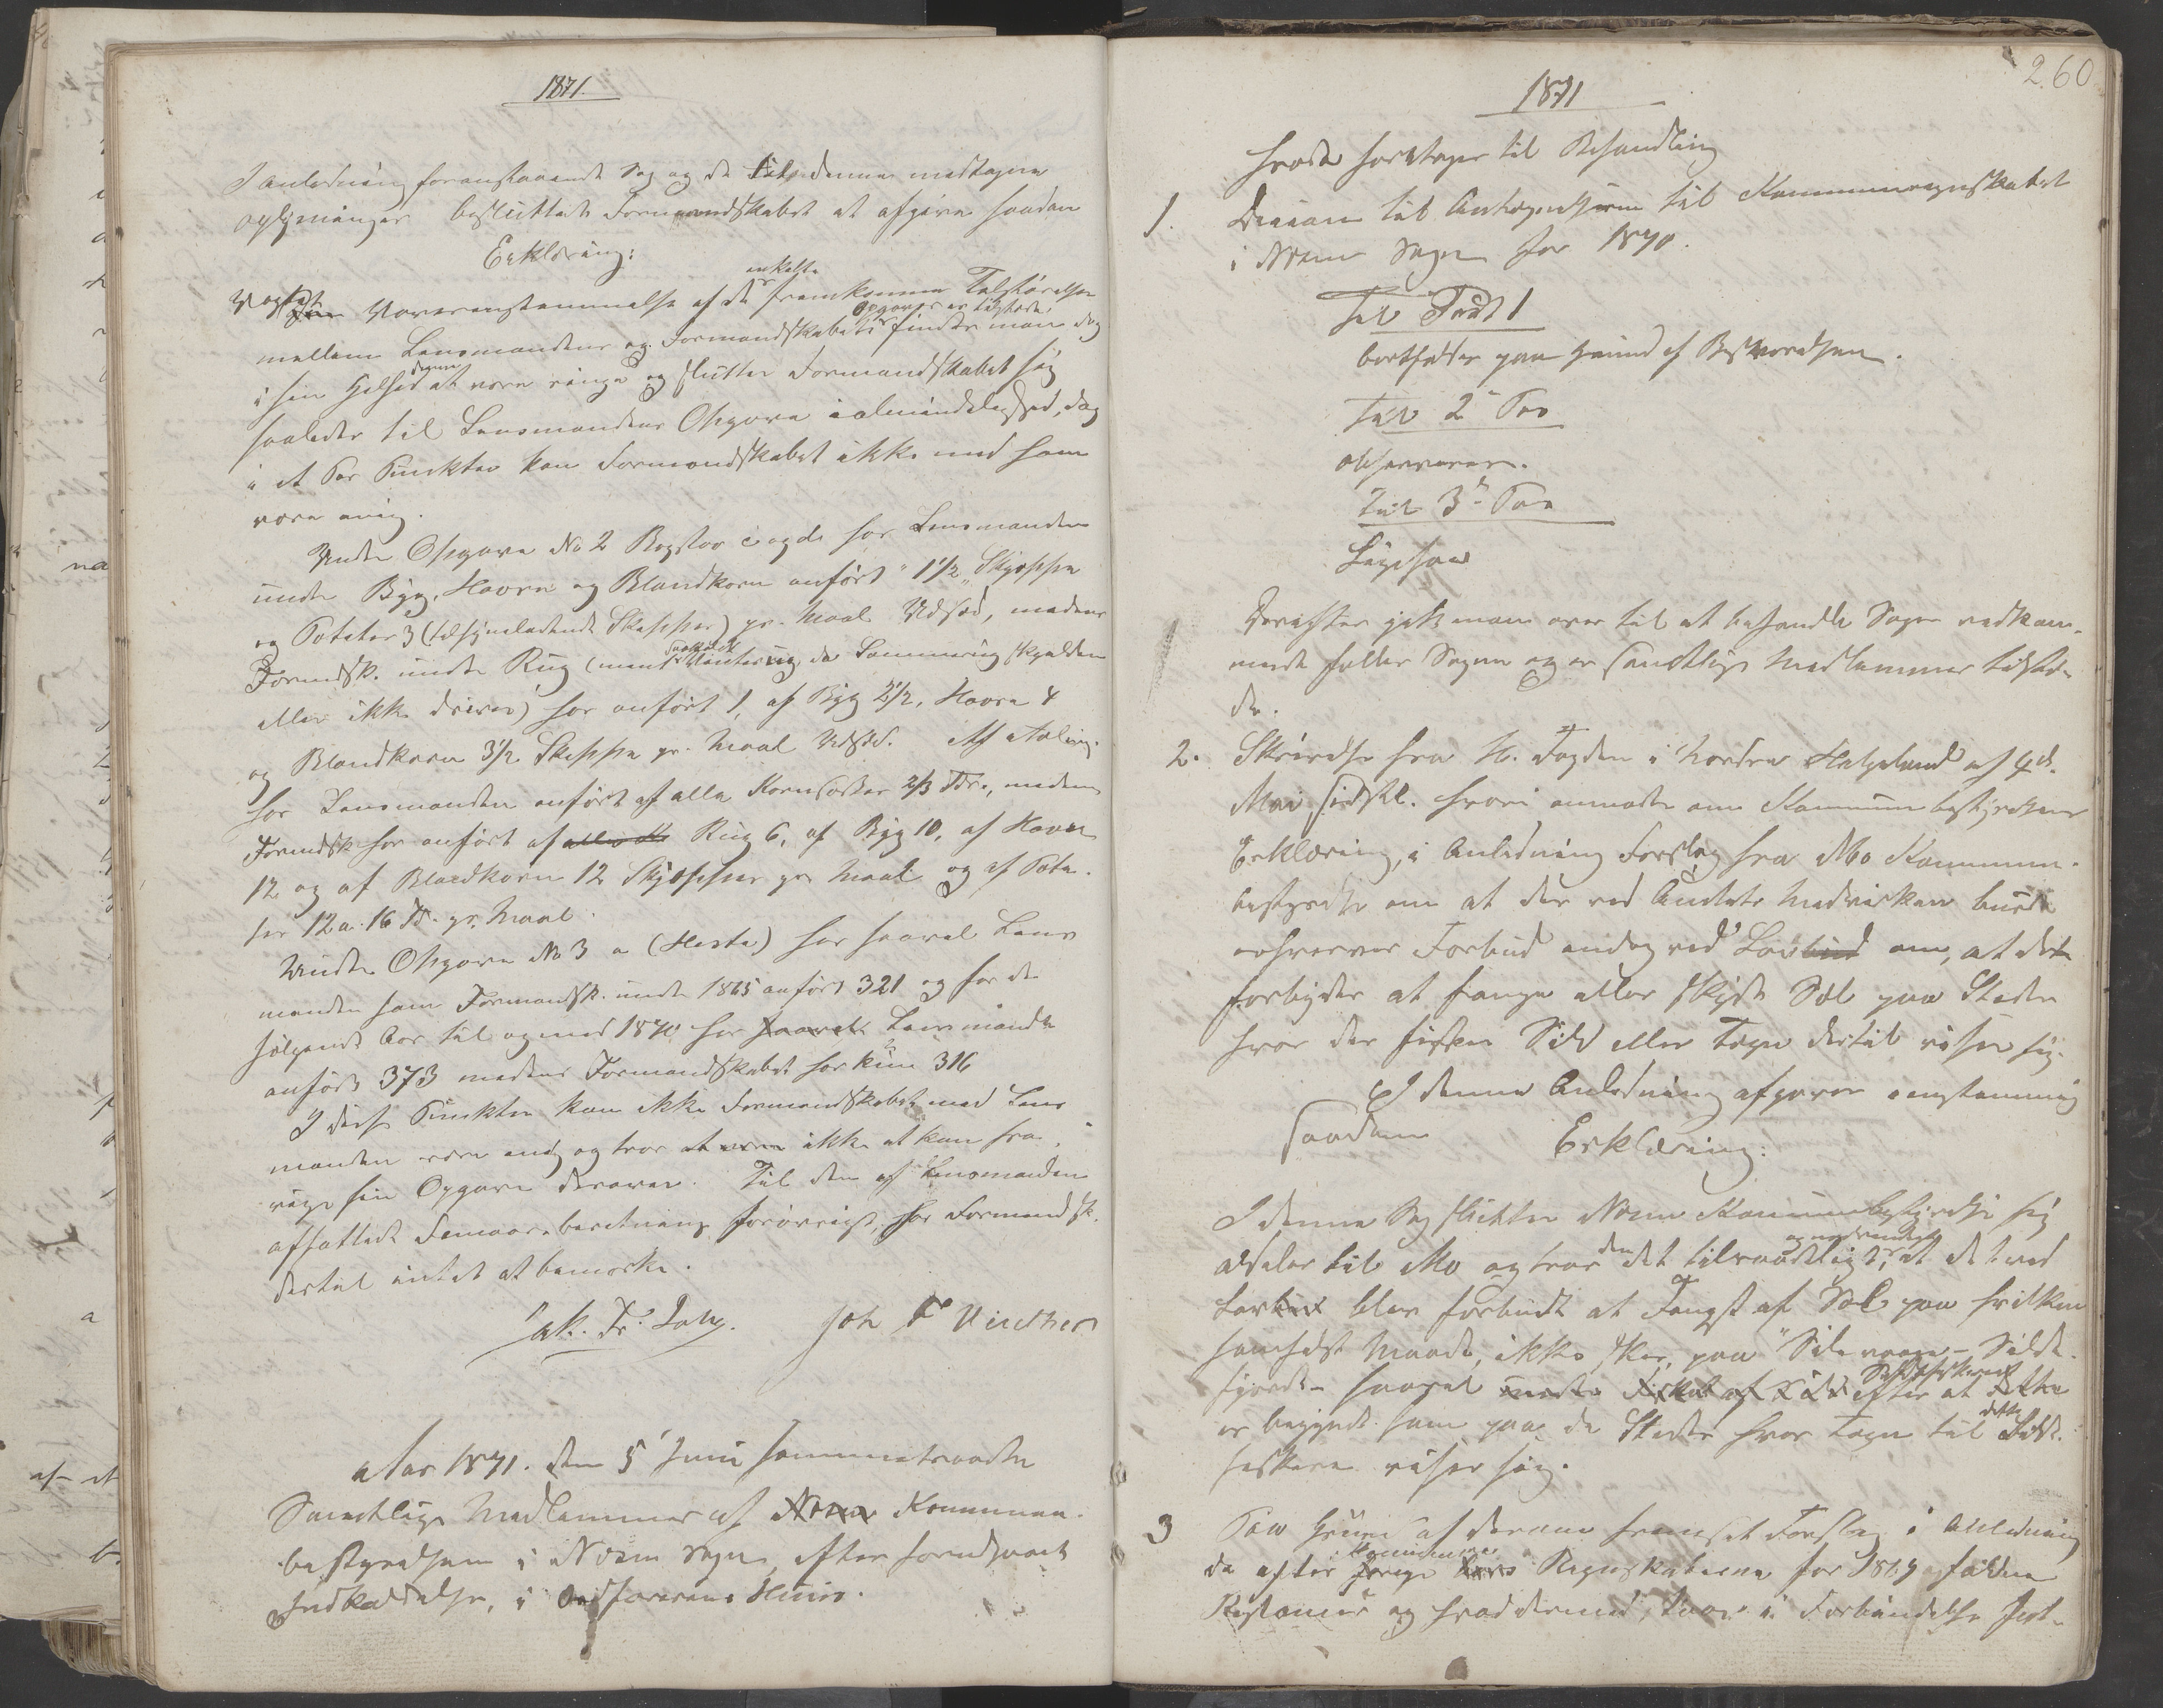 1871.
I Anledning foranstaaende Sag og de denne medtagne
oplysninger besluttede Formandskabet at afgive saadan
Erklæring:
enkelte
Uagtet Uoverensstemmelse af de fremkomne Talstørrelser
Opgaver
mellem Lensmandens og Formandskabets finder man dog
denne
i sin Helhed at være ringe og slutter Formandskabet sig
saaledes til Lensmandens Opgave i almindelighed, dog
i et Par Punkter kan Formandskabet ikke med ham
være enig.
Under Opgave No 2 Bogstav c og d har Lensmanden
under Byg, Havre og Blandkorn anført "1 1/2" Skjeppe
og Poteter 3 (tilsyneladende Skjepper) pr. Maal Udsæd, medens
Formdsk. under Rug (ment Vinterrug da Sommerrug sjelden
eller ikke drives) har anført 1, af Byg 2 1/2, Havre 4
og Blandkorn 3 1/2 Skjeppe pr. Maal Udsæd. Af Avling
har Lensmanden anført af alle Kornsorter 2/3 Tdr., medens
Formdsk. har anført af Rug 6, af Byg 10, af Havre
12 og af Blandkorn 12 Skjepper pr Maal og af Pote-
ter 12 a 16 Td. pr. Maal.
Under Opgave No 3 a (Heste) har saavel Lens
manden som Formandsk. under 1865 anført 321 og for de
følgende Aar til og med 1870 har Lensmanden
anført 373 medens Formandskabet har kun 316
I disse Punkter kan ikke Formandskabet med Lens
manden være enig og tror ikke at kan fra-
vige sin Opgave derover. Til den af Lensmanden
affattede Femaarsberetning forøvrigt, har Formandsk.
dertil intet at bemærke.
Joh
Aar 1871. den 5 Juni sammentraadte
Samtlige Medlemmer af Kommune-
bestyrelsen i Næsne Sogn, efter forudgaaet
Indkaldelse, i Ordførerens Huus.
260
1871
hvorda foretages til Behandling
1. Decision til Antegnelserne til Kommuneregnskabet
i Næsne Sogn for 1870.
Til Post 1
bortfalder paa Grund af Besvarelsen.
Til 2 Pos
observeres.
Til 3 Pos
Ligesaa
Derefter gik man over til at behandle Sager vedkom-
mende fælles Sogne og er samtlige Medlemmer tilste-
de.
2. Skrivelse fra H. Fogden i Nordre Helgeland af 4de
Mai sidstl. hvori anmodes om Kommunebestyrelsens
Erklæring, i Anledning Forslag fra Mo Kommune-
bestyrelse om at der ved Amtets Medvirken burde
erhverves Forbud endog ved Lov om, at det
forbydes at fange eller skyde Sæl paa Steder
hvor der fiskes Sild eller Tegn dertil viser sig.
I denne Anledning afgaves eenstemmig
saadan Erklæring:
I denne Sag slutter Næsne Kommunebestyrelse sig
den og nødvendigt
aldeles til Mo og tror det tilraadeligt, at det ved
Lov blev forbudt at Fangst af Sæl paa hvilken
somhelst Maade, ikke sker, paa "Silevaage - Silde-
Sildefiskeriet
fjorde - saavel under Fisket af Sild efter at dette
er begyndt som paa de Steder hvor Tegn til dette Silde-
fiskeri viser sig.
3 Paa Grund af derom fremsat Forslag i Anledning
Kommune
da efter forrige Regnskaberne for 1869 opførte
Restancer og hvad dermed staar i Forbindelse